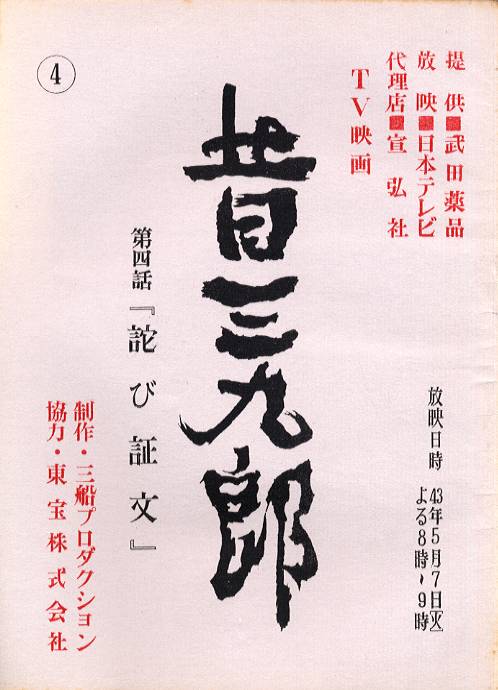 提供■武田薬品
放映■日本テレビ
代理店■宣弘社
TV映画
放映日時 43年5月7日(火)
よる8時~9時
昔三九郎
第四話『詫び証文』
制作・三船プロダクション
協力・東宝株式会社
④